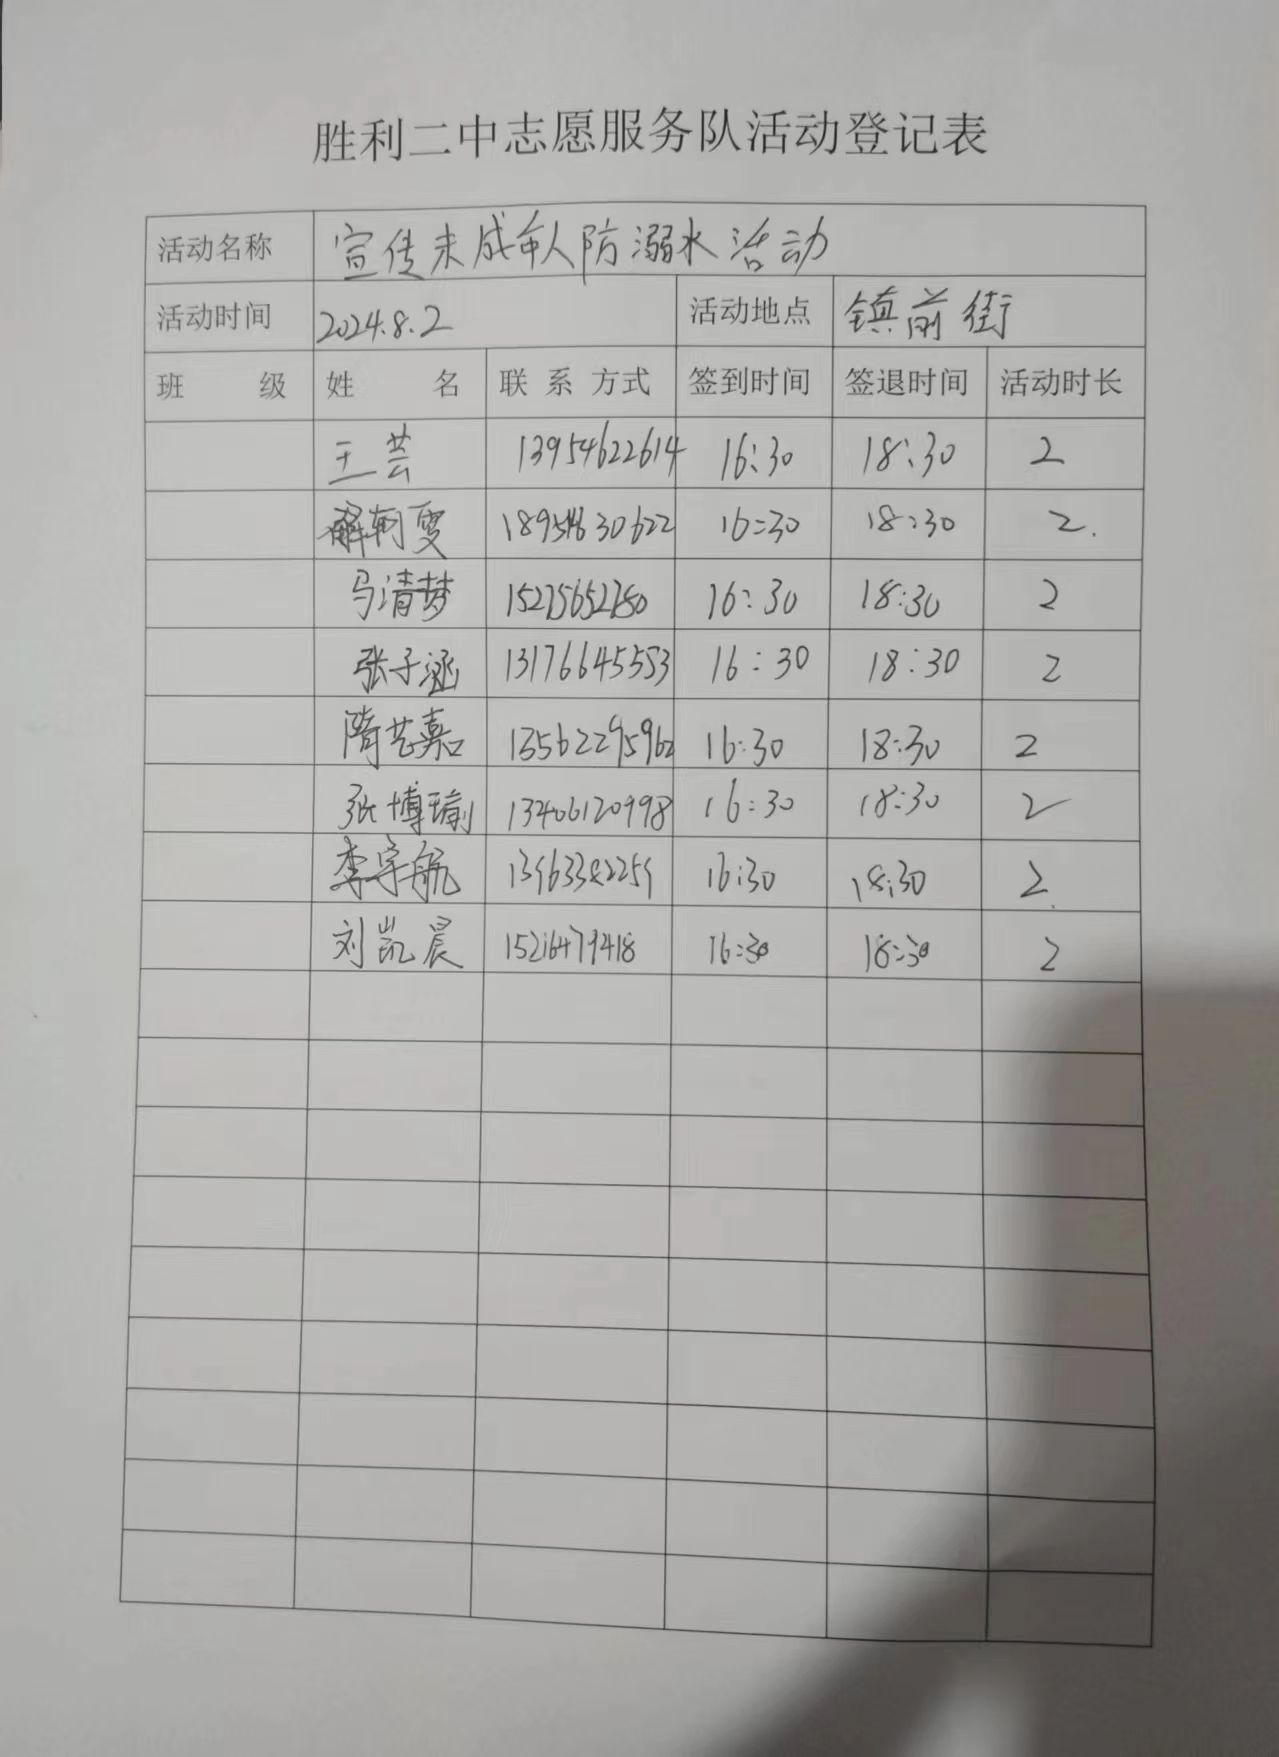 胜利二中志愿服务队活动登记表
活动名称 宣传未成年人防溺水活动
活动时间 2024.8.2 活动地点 镇前街
班 级 姓 名 联系方式 签到时间 签退时间 活动时长
王芸 13954622614 16:30 18:30 2
18954630622 16:30 18:30 2.
马清梦 15275652780 16:30 18:30 2
张子涵 13176645553 16:30 18:30 2
隋艺嘉 13562295962 16:30 18:30 2
张博瑜 13406120998 16:30 18:30 2
李宇航 13963382259 16:30 18:30 2.
刘凯晨 15216479418 16:30 18:30 2